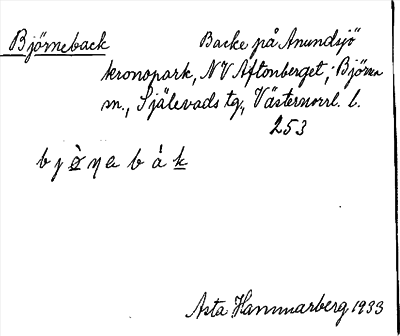 Björneback Backe på Anundsjö
kronopark, NV Aftonberget, Björna
sn., Själevads tg., Västernorrl. l.
253
b j ö̀ ŋ e b á k
Asta Hammarberg 1933